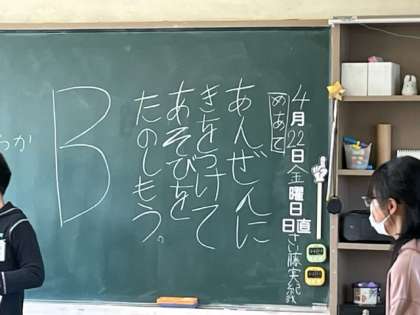 4月22日金曜日
日直 さい藤実紀
めあて
あんぜんに
きをつけて
あそびを
たのしもう。
B